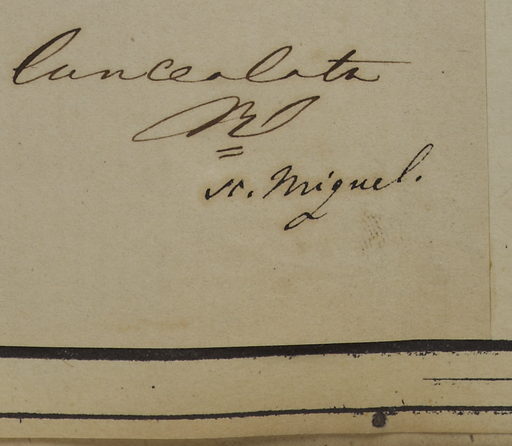 lanceolata
St. Miguel.